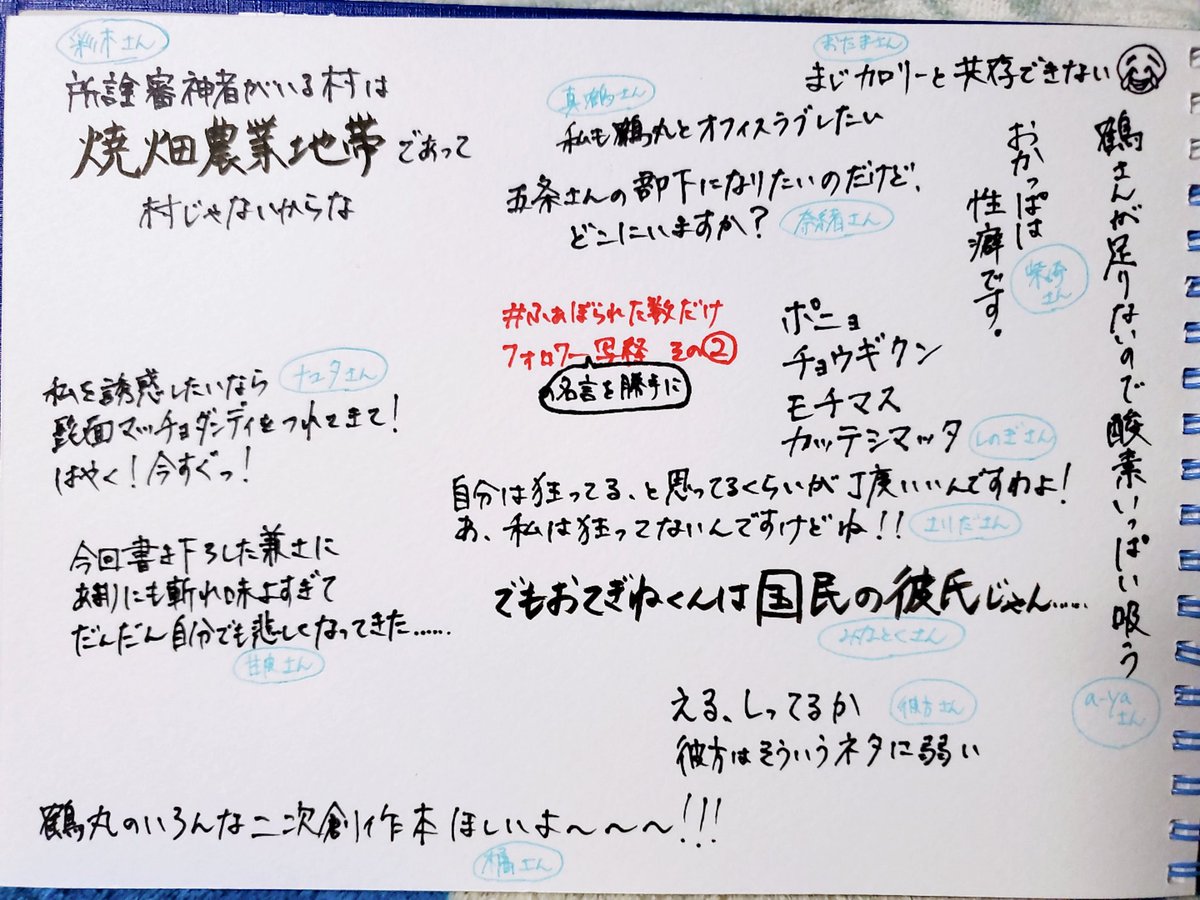 彩木さん
所詮審神者がいる村は
焼畑農業地帯であって
村じゃないからな
おたまさん
まじカロリーと共存できない
真鶴さん
私も鶴丸とオフィスラブしたい
五条さんの部下になりたいのだけど、
どこにいますか?
奈緒さん
おかっぱは
性癖です。
柴崎
さん
鶴さんが足りないので酸素いっぱい吸う
a-ya
さん
#ふぁぼられた数だけ
フォロワー写経 その②
の名言を勝手に
ポニョ
チョウギクン
モチマス
カッテシマッタ
しのぎさん
ナユタさん
私を誘惑したいなら
髭面マッチョダンディをつれてきて!
はやく!今すぐっ!
自分は狂ってる、と思ってるくらいが丁度いいんですわよ!
あ、私は狂ってないんですけどね!!
えりださん
今回書き下ろした兼さに
あまりにも斬れ味よすぎて
だんだん自分でも悲しくなってきた……
さん
でもおてぎねくんは国民の彼氏じゃん……
みなとくさん
える、しってるか
彼方はそういうネタに弱い
彼方さん
鶴丸のいろんな二次創作本ほしいよ〜〜〜!!!
橘さん